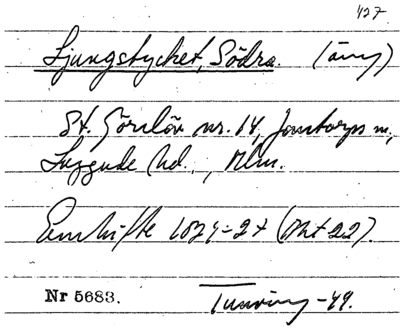 127
Ljungstycket, Södra. (äng)
St. Görslöv nr. 14, Jonstorps sn,
Luggude hd., Mlm.
Enskifte 1824-27 (Akt 22).
Nr 5683. Tuneving -49.